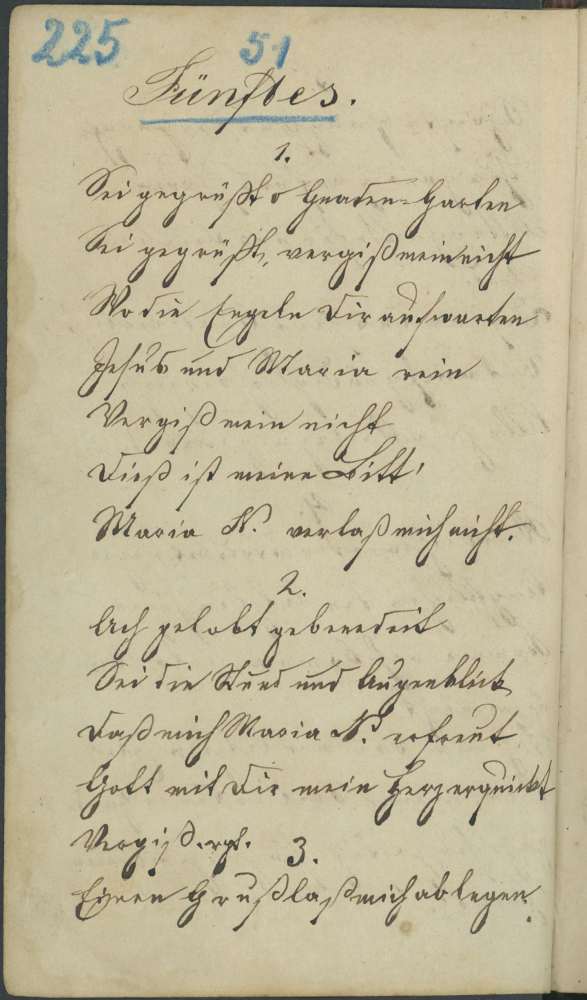 225 51
Fünftes.
1.
Sei gegrüßt o Gnaden=Garten
Sei gegrüßt, vergißmeinnicht
Wo die Engeln dir aufwarten
Jesus und Maria rein
Vergiß mein nicht
Dieß ist meine Bitt'
Maria N. verlaß mich nicht.
2.
Ach gelobt gebenedeit
Sei die Stund und Augenblick
Daß mich Maria N. erfreut
Gott mit dir mein Herz erquickt
Vergiß. rpt.
3.
Einen Gruß laß mich ablegen